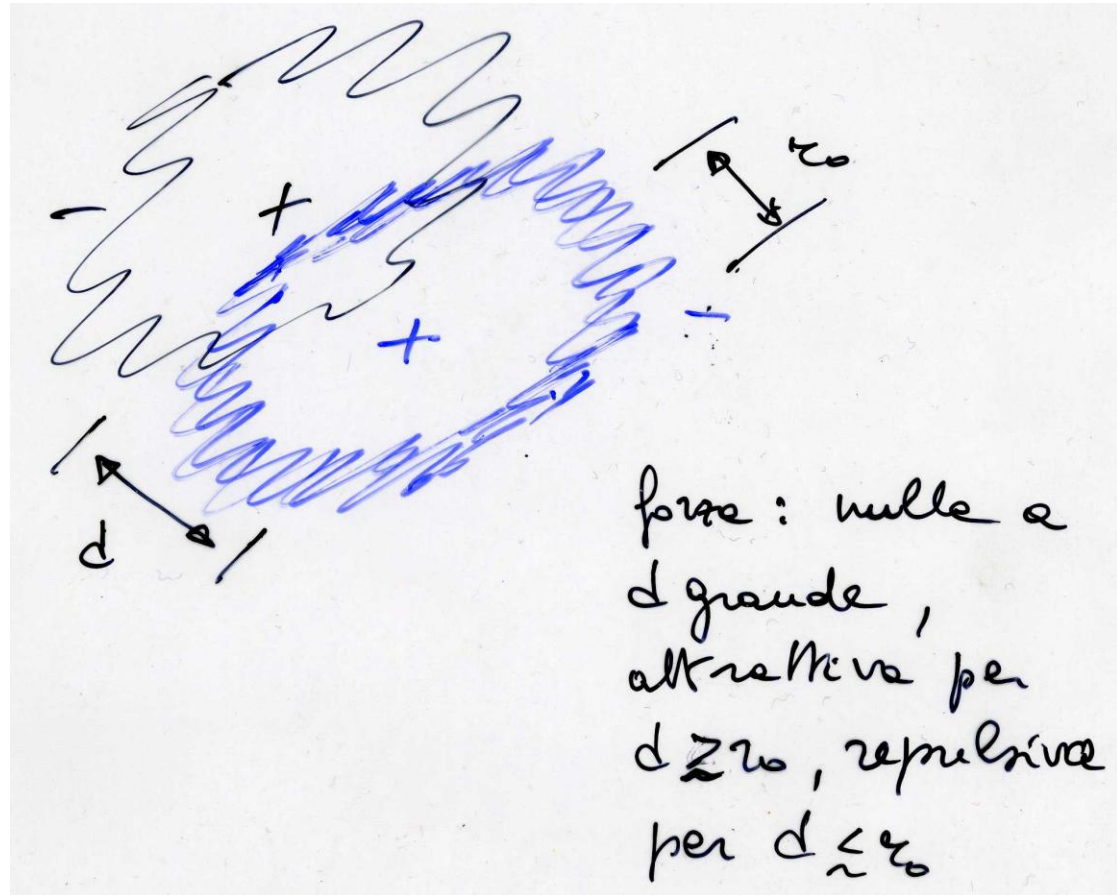 r₀
-
+
+
-
d
forza: nulla a
d grande,
attrattiva per
d ≳ r₀, repulsiva
per d ≲ r₀